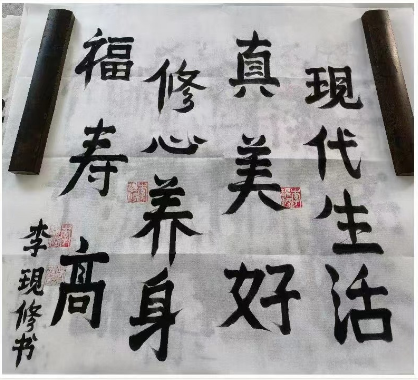 现代生活
真美好
修心养身
福寿高
李现修书